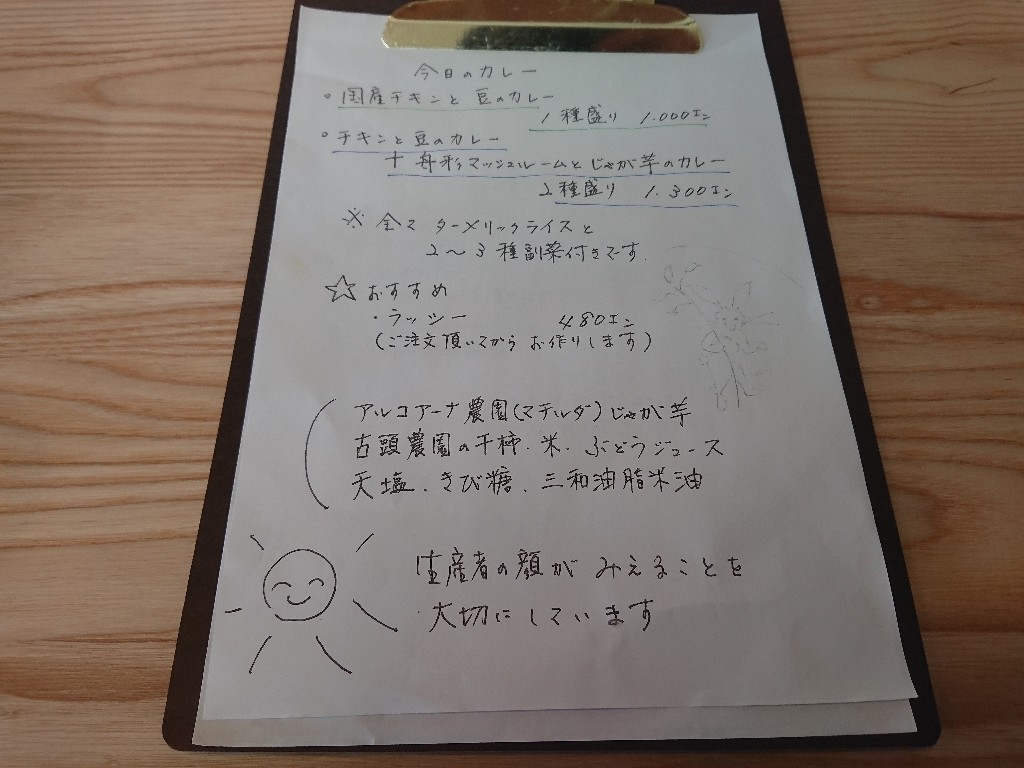 今日のカレー
・国産チキンと豆のカレー
1種盛り 1.000エン
・チキンと豆のカレー
+舟形マッシュルームとじゃが芋のカレー
2種盛り 1.300エン
※全て ターメリックライスと
2〜3種副菜付きです.
☆おすすめ
・ラッシー 480エン
(ご注文頂いてから お作りします)
アルコアーナ農園(マチルダ)じゃが芋
古頭農園の干柿.米.ぶどうジュース
天塩.きび糖.三和油脂米油
生産者の顔が みえることを
大切にしています